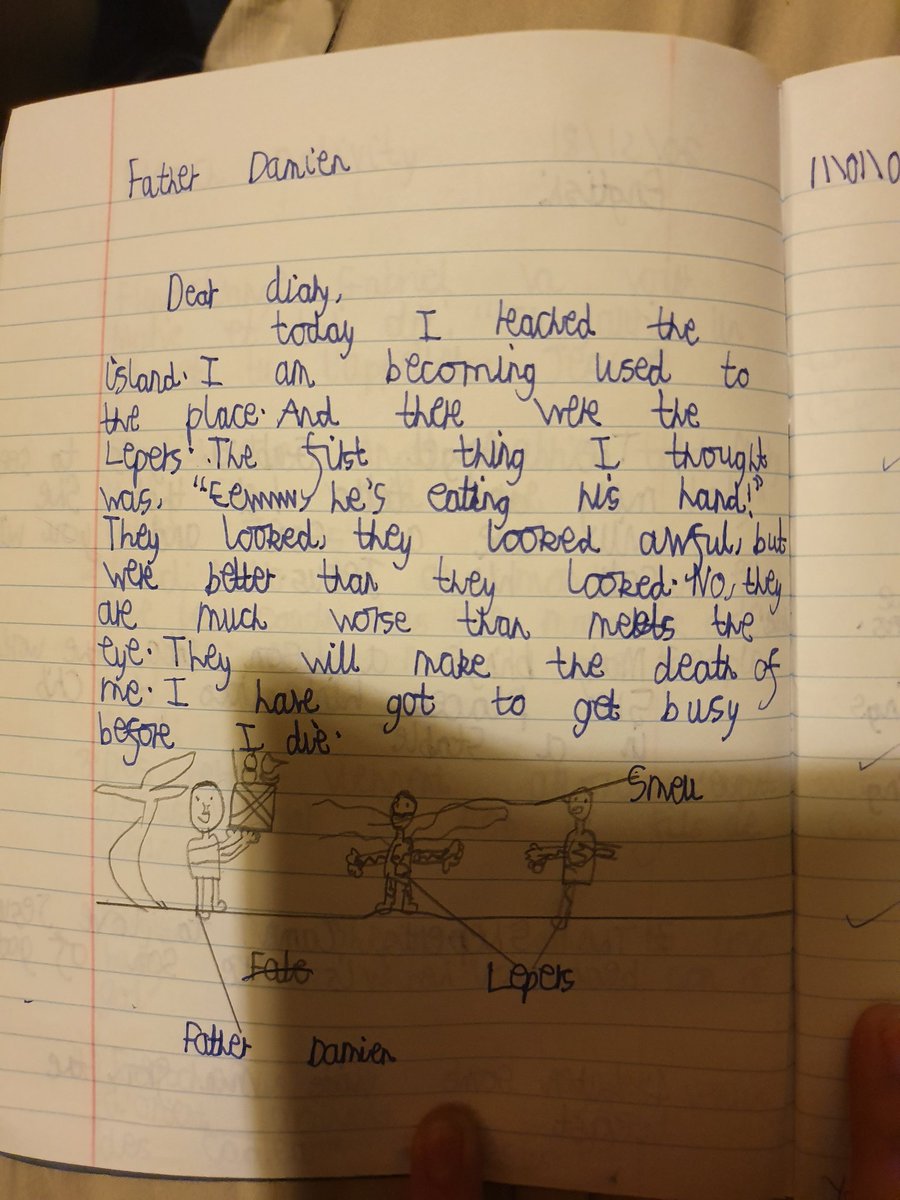 Father Damien
11\01\0
Dear diary,
today I reached the
island. I am becoming used to
the place. And there were the
Lepers. The first thing I thought
was, "Eewww, he's eating his hand!"
They looked, they looked awful, but
were better than they looked. No, they
are much worse than meets the
eye. They will make the death of
me. I have got to get busy
before I die.
Smell
Lepers
Father Damien